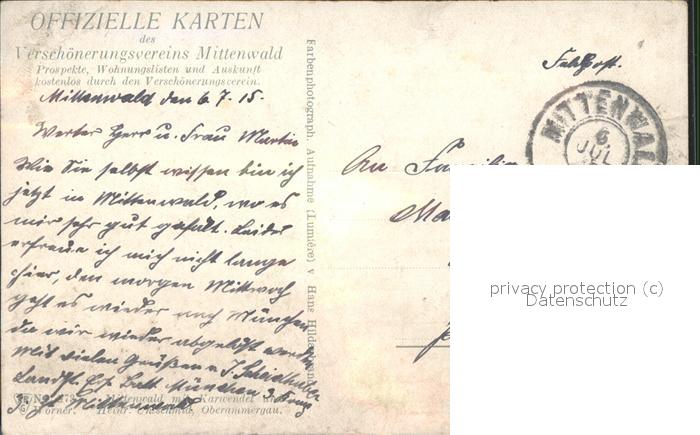 OFFIZIELLE KARTEN
des
Verschönerungsvereins Mittenwald
Prospekte, Wohnungslisten und Auskunft
kostenlos durch den Verschönerungsverein.
Mittenwald den 6.7.15.
Werter Herr u. Frau Martin
Wie Sie selbst wissen bin ich
jetzt in Mittenwald, wo es
mir sehr gut gefällt. Leider
erfreue ich mich nicht lange
hier, den morgen Mittwoch
geht es wieder nach München
da wir wieder abgelöst werden
Mit vielen Grüßen v. J.
Landst. Batt München
Mittenwald
Mittenwald mit Karwendel
Wörner. Heinr. Uhlschmid, Oberammergau.
Farbenphotograph. Aufnahme (Lumière) v. Hans
Feldpost.
MITTENWAL
6
JUL
An Familie
Ma
privacy protection (c)
Datenschutz